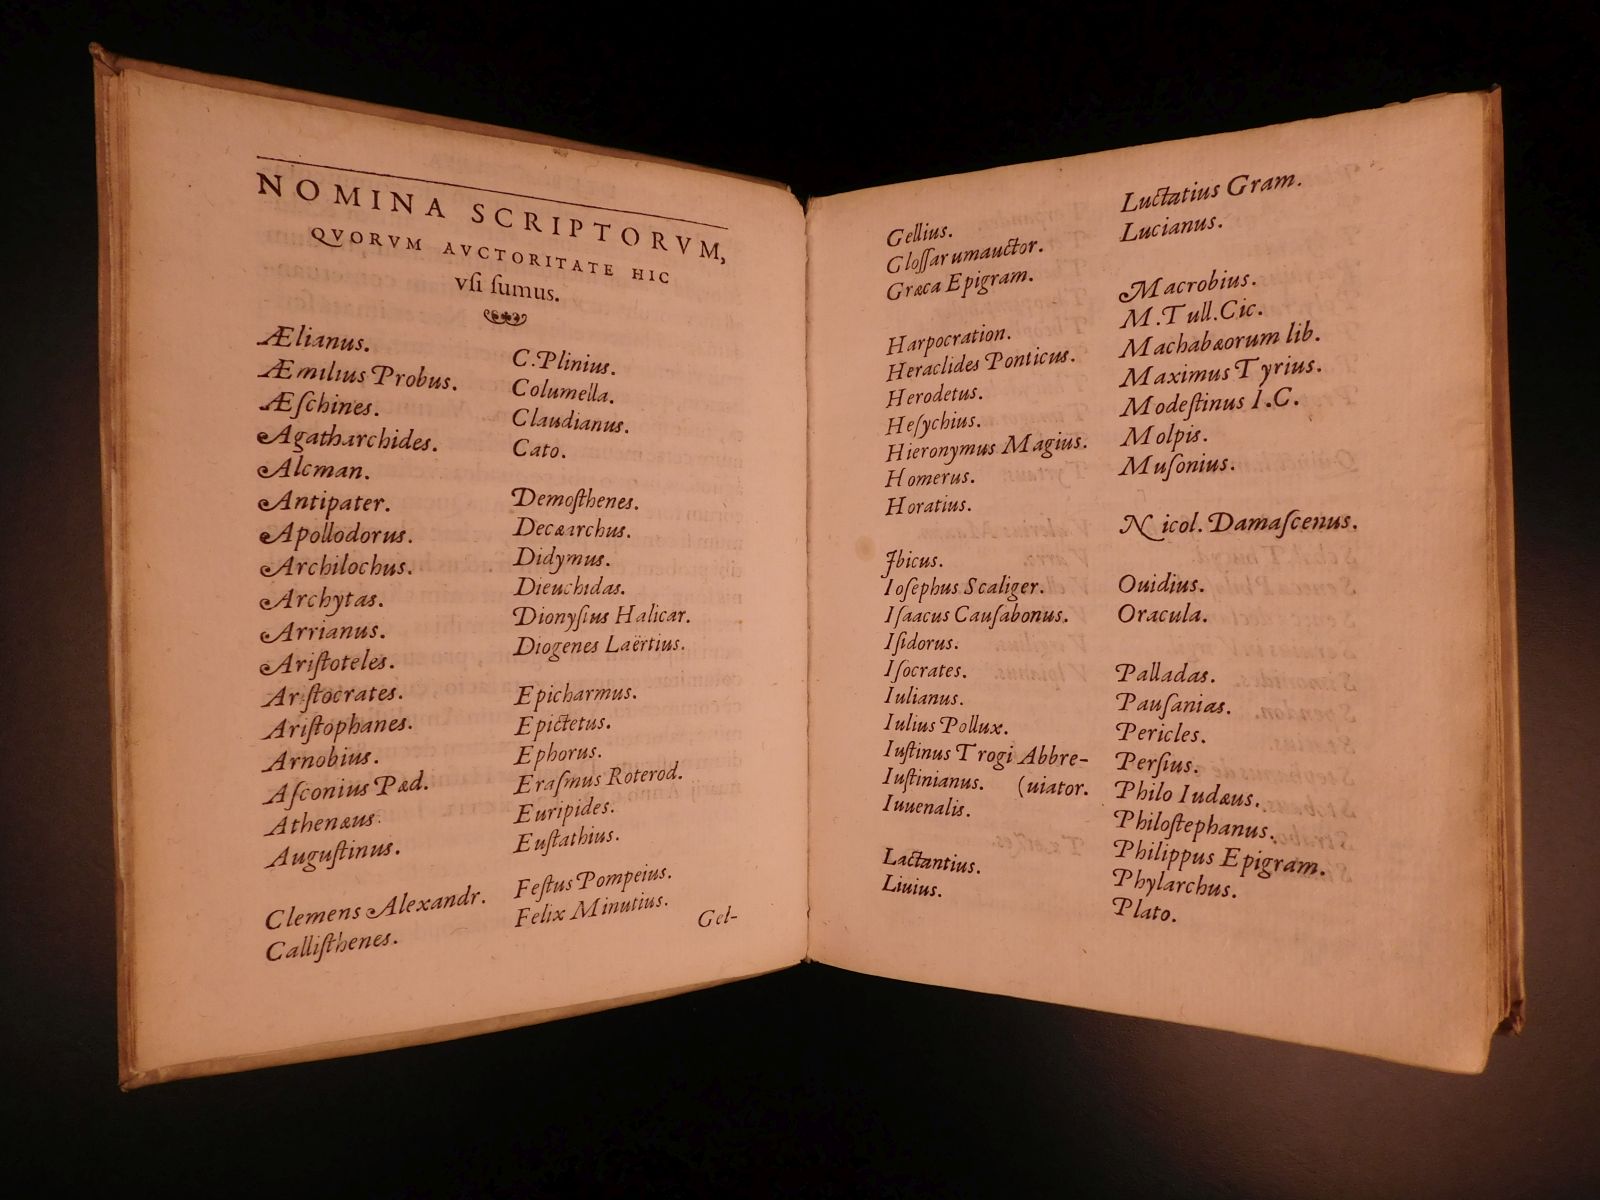 NOMINA SCRIPTORVM,
QVORVM AVCTORITATE HIC
vſi ſumus.
Ælianus.
Æmilius Probus.
Æſchines.
Agatharchides.
Alcman.
Antipater.
Apollodorus.
Archilochus.
Archytas.
Arrianus.
Ariſtoteles.
Ariſtocrates.
Ariſtophanes.
Arnobius.
Aſconius Pæd.
Athenæus.
Auguſtinus.
Clemens Alexandr.
Calliſthenes.
C. Plinius.
Columella.
Claudianus.
Cato.
Demoſthenes.
Decæarchus.
Didymus.
Dieuchidas.
Dionyſius Halicar.
Diogenes Laërtius.
Epicharmus.
Epictetus.
Ephorus.
Eraſmus Roterod.
Euripides.
Euſtathius.
Feſtus Pompeius.
Felix Minutius.
Gel-
Gellius.
Gloſſarum auctor.
Græca Epigram.
Harpocration.
Heraclides Ponticus.
Herodetus.
Heſychius.
Hieronymus Magius.
Homerus.
Horatius.
Ibicus.
Ioſephus Scaliger.
Iſaacus Cauſabonus.
Iſidorus.
Iſocrates.
Iulianus.
Iulius Pollux.
Iuſtinus Trogi Abbre-
Iuſtinianus. (uiator.
Iuuenalis.
Lactantius.
Liuius.
Luctatius Gram.
Lucianus.
Macrobius.
M. Tull. Cic.
Machabæorum lib.
Maximus Tyrius.
Modeſtinus I.C.
Molpis.
Muſonius.
Nicol. Damaſcenus.
Ouidius.
Oracula.
Palladas.
Pauſanias.
Pericles.
Perſius.
Philo Iudæus.
Philoſtephanus.
Philippus Epigram.
Phylarchus.
Plato.